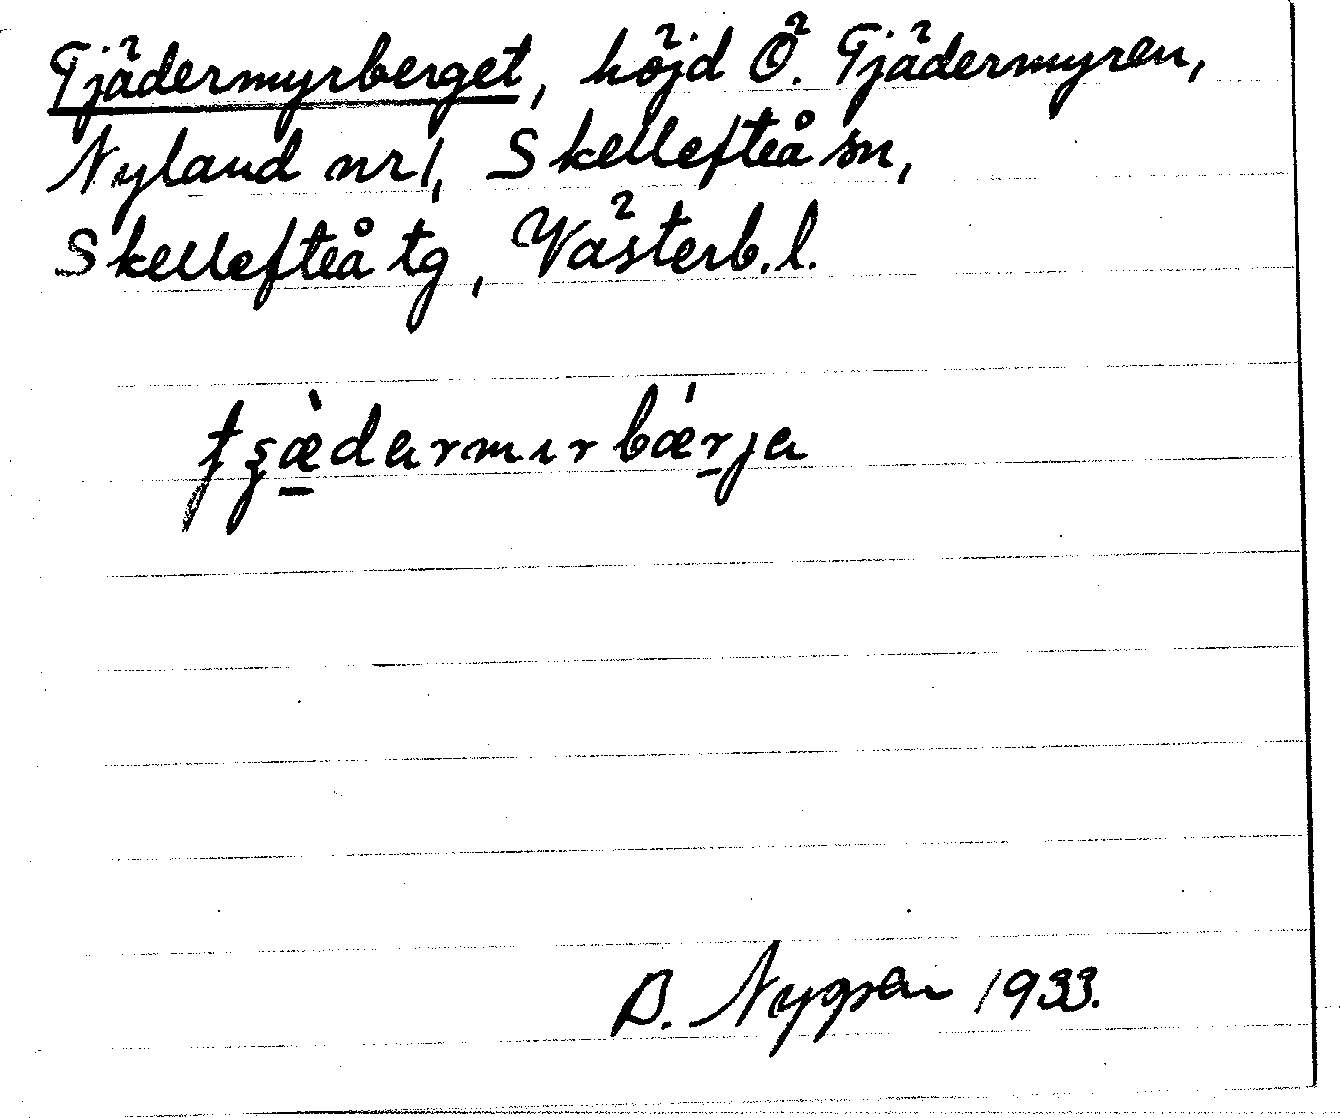 Tjädermyrberget, höjd Ö. Tjädermyren,
Nyland nr 1, Skellefteå sn,
Skellefteå tg, Västerb. l.
tʂæ̀darmɪrbǽrja
B. Nygren 1933.